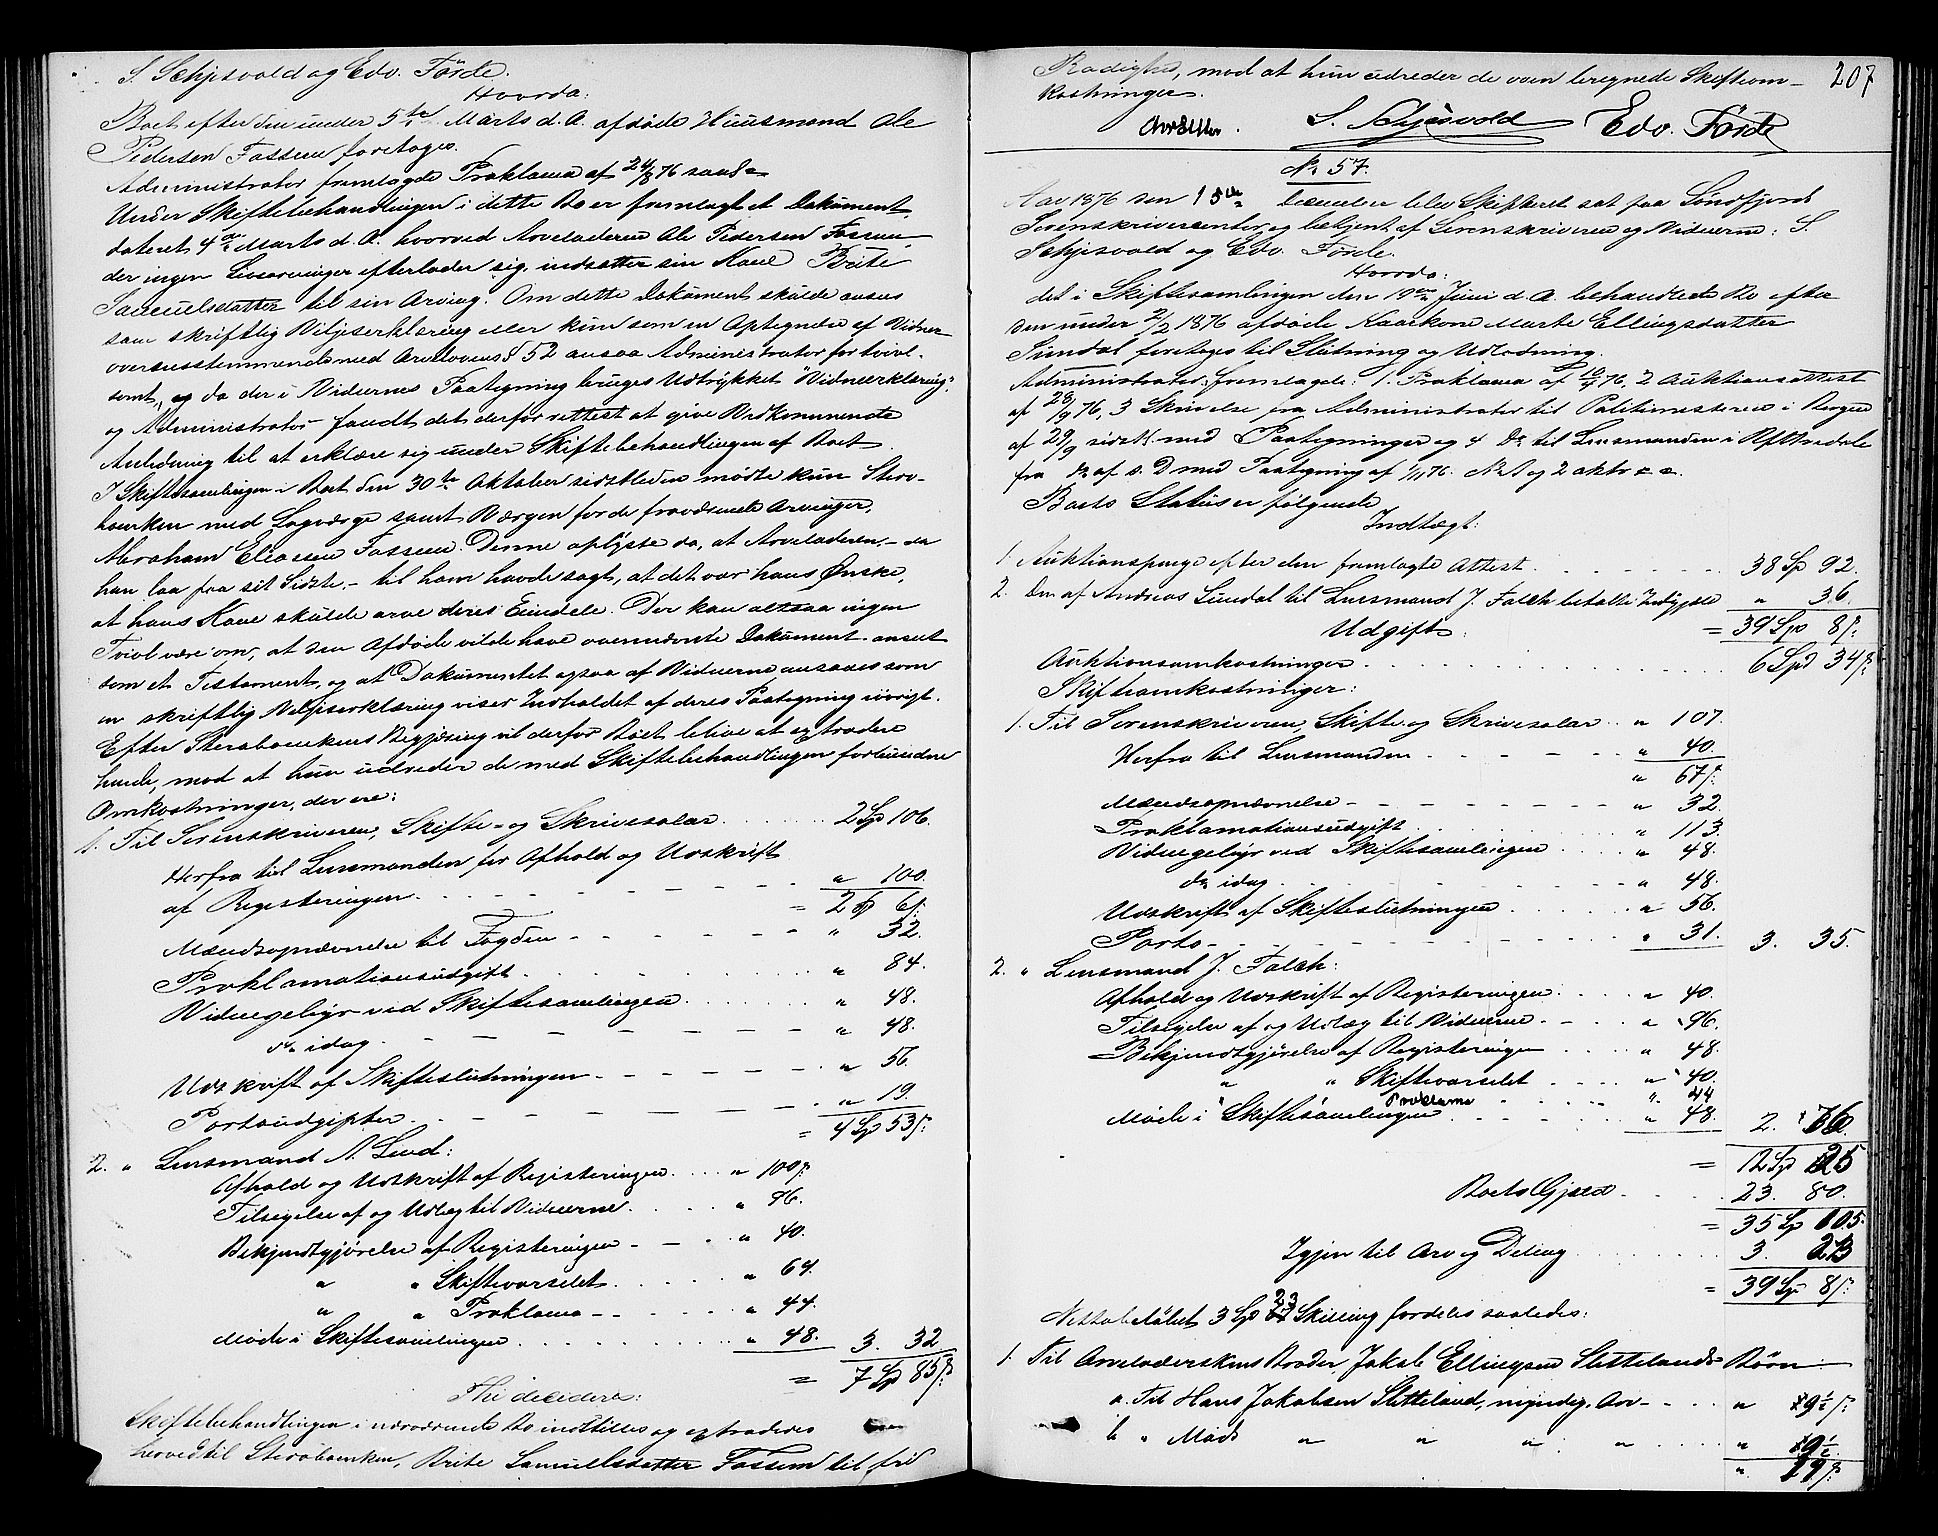 S. Schjisvold og Edv. Förde.
Hvorda:
Boet efter den under 5te Marts d. A. afdöde Huusmand Ole
Pedersen Fossum foretoges.
Administrator fremlagde Proklama af 24/8 76 saal.
Under Skiftebehandlingen i dette Bo er fremlagt et Dokument
dateret 4de Marts d. A. hvorved Arveladeren Ole Pedersen Fossum,
der ingen Livsarvinger efterlader sig, indsætter sin Kone Brite
Samuelsdatter til sin Arving. Om dette Dokument skulde ansees
som skriftlig Viljeserklæring eller kun som en Optegnelse af Vidner
overensstemmende med Arvelovens § 52 ansaa Administrator for tvivl-
somt, og da der i Vidnernes Paategning bruges Udtrykket "Vidneerklæring",
og Administrator fandt det derfor rettest at give Vedkommende
Anledning til at erklære sig under Skiftebehandlingen af Boet.
I Skiftesamlingen i Boet den 30te Oktober sidstleden mødte kun Sterv-
boenken med Lagværge samt Værgen for de fraværende Arvinger,
Abraham Eliassen Fossum. Denne oplyste da, at Arveladeren, - da
han laa paa sit Sidste, - til ham havde sagt, at det var hans Ønske,
at hans Kone skulde arve deres Eiendele. Der kan altsaa ingen
Tvivl være om, at den Afdöde vilde have ovennævnte Dokument anseet
som et Testament, og at Dokumentet ogsaa af Vidnerne ansaaes som
en skriftlig Viljeserklæring viser Indholdet af deres Paategning iövrigt.
Efter Stervboenkens Begjæring vil derfor Boet blive at extradere
hende, mod at hun udreder de med Skiftebehandlingen forbundne
Omkostninger, der ere:
1. Til Sorenskriveren, Skifte- og Skriversalar 2 Sp 106.
Herfra til Lensmanden for Afhold og Udskrift
af Registeringen " 100.
= 2 Sp 6 /:
Mændsopnævnelse til Fogden " 32.
Proklamationsudgift " 84.
Vidnegebyr ved Skiftesamlingen " 48.
do idag " 48.
Udskrift af Skifteslutningen " 56.
Portoudgifter " 19.
= 4 Sp 53 /:
2. " Lensmand N. Lind:
Afhold og Udskrift af Registeringen " 100 /:
Tilsigelse af og Udlæg til Vidnerne " 96.
Bekjendtgjörelse af Registeringen " 40.
" " Skiftevarselet " 64.
" " Proklama " 44.
Möde i Skiftesamlingen " 48. 3. 32
= 7 Sp 85 /:
Thi decideres:
Skiftebehandlingen i nærværende Bo indstilles og extraderes
herved til Stervboenken, Brite Samuelsdatter Fossum til fri
207
Raadighed, mod at hun udreder de oven beregnede Skifteom-
kostninger.
S. Schjisvold Edv. Förde
No 57.
Aar 1876 den 15de December blev Skifteret sat paa Söndfjords
Sorenskrivercontor og betjent af Sorenskriveren og Vidnerne: S.
Schjisvold og Edv. Förde.
Hvorda:
det i Skiftesamlingen den 19de Juni d. A. behandlede Bo efter
den under 2/2 1876 afdöde Kaarkone Marte Ellingsdatter
Sundal foretoges til Slutning og Udlodning.
Administrator fremlagde: 1. Proklama af 10/7 76, 2 Auktionsattest
af 28/9 76, 3 Skrivelse fra Administrator til Politimesteren i Bergen
af 29/9 sidstl. med Paategninger og 4 Do til Lensmanden i
fra do af s. D med Paategning af 1/11 76. No 1 og 2
Boets Status er fölgende
Indtægt:
1. Auktionspenge efter den fremlagte Attest 38 Sp 92.
2. Den af Andreas Sundal til Lensmand J. Falch betalte " 36.
= 39 Sp 8 /:
Udgift:
Auktionsomkostninger 6 Spd 34 /:
Skifteomkostninger:
1. Til Sorenskriveren, Skifte- og Skriversalar " 107.
Herfra til Lensmanden " 40.
" 67 /:
Mændsopnævnelse " 32.
Proklamationsudgift " 113.
Vidnegebyr ved Skiftesamlingen " 48.
do idag " 48.
Udskrift af Skifteslutningen " 56.
Porto " 31. 3. 35.
2. " Lensmand J. Falch:
Afhold og Udskrift af Registeringen " 40.
Tilsigelse af og Udlæg til Vidnerne " 96.
Bekjendtgjörelse af Registeringen " 48.
" " Skiftevarselet " 40.
" " Proklama " 44
Möde i Skiftesamlingen " 48. 2. 76.
= 12 Sp 25
Boets Gjæld 23. 80.
= 35 Sp 105.
Igjen til Arv og Deling 3. 23
= 39 Sp 8 /:
Nettobelöbet 3 Sp 23 Skilling fordeles saaledes:
1. Til Arveladerskens Broder Jakob Ellingsen Slettelands Börn:
a. Til Hans Jakobsen Sletteland, myndig, Arv " 9 1/2 /:
b " Mads " " " " " 9 1/2
" 19 /: